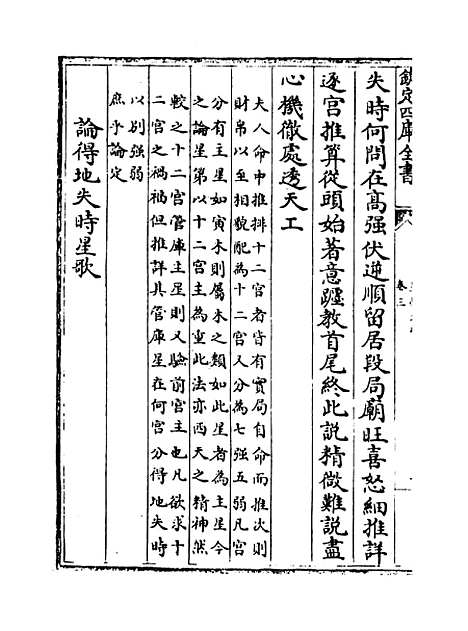 欽定四庫全書
卷三
失時何問在髙强伏逆順留居段局廟旺喜怒細推詳
逐宫推算從頭始著意躔教首尾終此說精微難說盡
心機徹處透天工
夫人命中推排十二宫者皆有實局自命而推次則
財帛以至相貌配為十二宫又分為七强五弱凡宫
分有主星如寅木則屬木之類如此星者為主星今
之論星第以十二宫主為重此法亦西天之精神然
較之十二宫管庫主星則又驗前宫主也凡欲求十
二宫之禍福但推詳其管庫星在何宫分得地失時
以别强弱
庶乎論定
論得地失時星歌